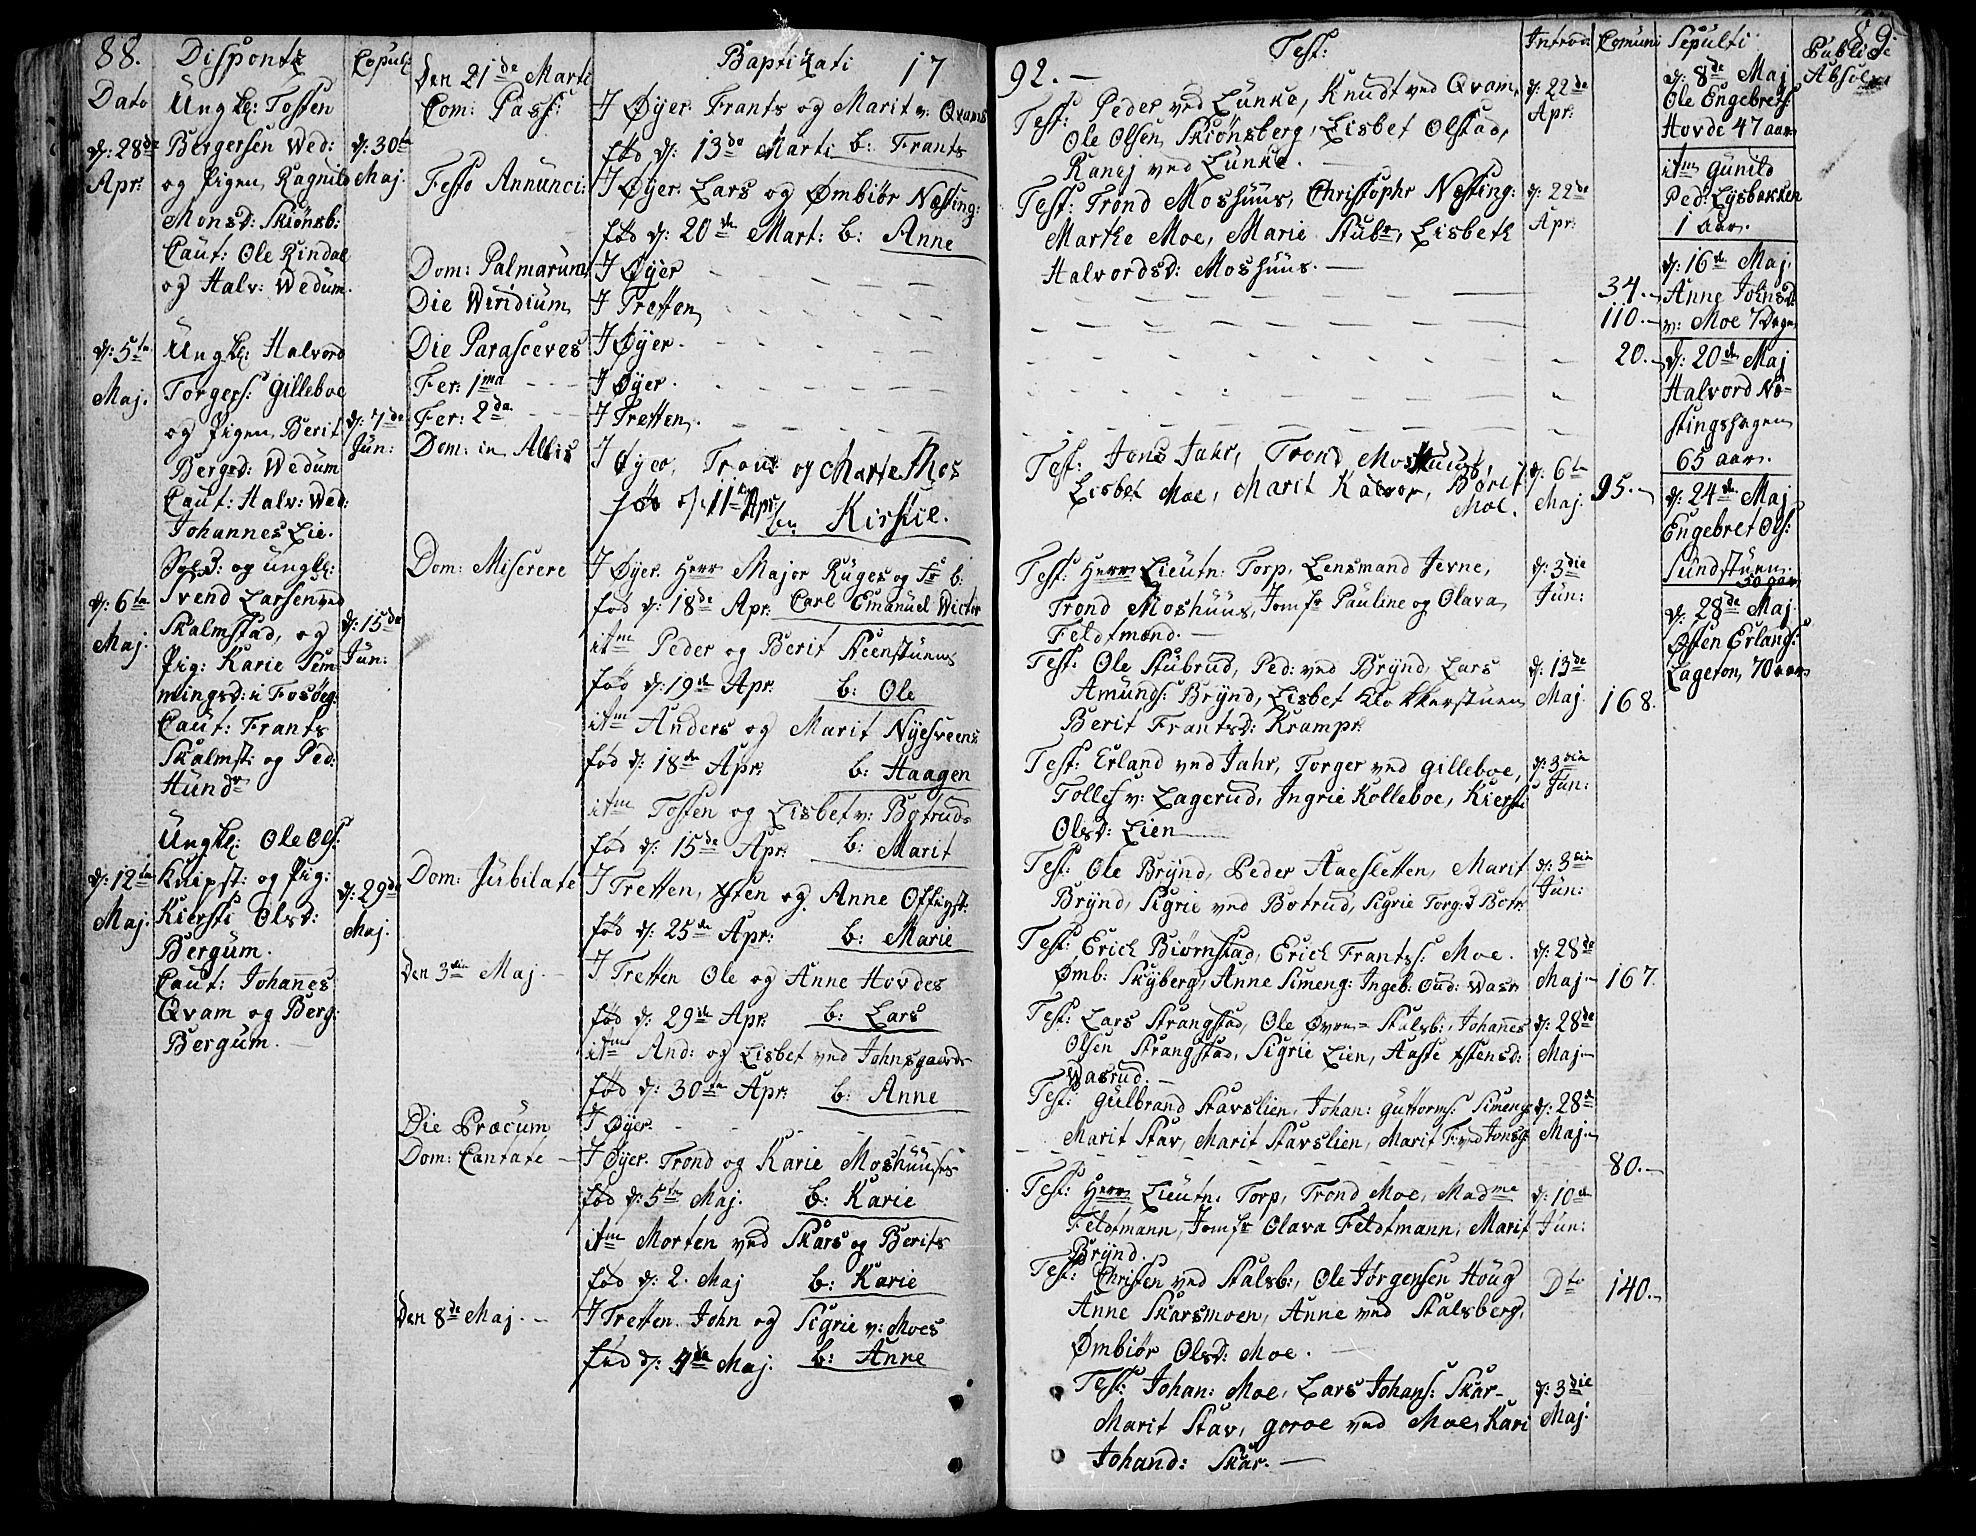 88.
Disponti
Copul:
Baptizati 17
Dato
Ungk: Tosten
d: 28de Bergersen Wed:
d: 30te
Apr: og Pigen Ragnild
Maj.
Monsd: Skiönsb:
Caut: Ole Rindal
og Halv: Wedum.
d: 5te Ungk: Halvord
Maj. Torgers: Gilleboe
og Pigen Berit
d: 7de
Bergsd: Wedum
Jun:
Caut: Halv: Wed:
Johannes Lie.
Sold: og ungk:
d: 6te Svend Larsen ved
Skalmstad, og
d: 15de
Maj. Pig: Karie Sem
Jun:
mingsd: i Fosöeg:
Caut: Frants
Skalmst: og Ped:
Hunder
Ungk: Ole Ols:
d: 12te Knipst: og Pig:
d: 29de
Maj. Kiersti Olsd:
Maj.
Bergum.
Caut: Johannes
Qvam og Berg:
Bergum.
Den 21de Marti
Com: Pass:
J Øyer. Frants og Marit v: Qvams
fød d: 13de Marti b: Frants
Festo Annunci:
J Øyer. Lars og Ømbiör Næsting:
fød d: 20de Mart: b: Anne
Dom: Palmarum J Øyer
Die Viridium J Tretten
Die Parasceves J Øyer.
Fer: 1ma J Øyer.
Fer: 2da J Tretten.
Dom: in Albis J Øyer, Trond og Marte Moes
fød d: 11te Apr: b: Kirstie.
Dom: Miserere J Øyer. Herr Major Ruges og Fr b:
fød d: 18de Apr: Carl Emanuel Wictor
itm Peder og Berit Steenstuens
fød d: 19de Apr: b: Ole
itm Anders og Marit Nyesveens
fød d: 18de Apr: b: Haagen
itm Tosten og Lisbet v: Botruds
fød d: 15de Apr: b: Marit
Dom: Jubilate J Tretten, Østen og Anne Offigst:
fød d: 25de Apr: b: Marie
Den 3die Maj. J Tretten Ole og Anne Hovdes
fød d: 29de Apr: b: Lars
itm And: og Lisbet ved Johnsgaards
fød d: 30te Apr: b: Anne
Die Precum J Øyer.
Dom: Cantate J Øyer. Trond og Karie Moshuuses
fød d: 5te Maj. b: Karie
itm Morten ved Skars og Berits
fød d: 2. Maj b: Karie
Den 8de Maj. J Tretten. John og Sigrie v: Moes
fød d: 4de Maj. b: Anne
92.
Test:
Introd:
Comuni
Sepulti
Public
Absol
89.
Test: Peder ved Lunke, Knudt ved Qvam,
d: 22de
Ole Olsen Skiönsberg, Lisbet Olstad,
Apr:
Ranej ved Lunke.
Test: Trond Moshuus, Christophr Næsting:
d: 22de
Marthe Moe, Marie Stube, Lisbeth
Apr:
Halvordsd: Moshuus.
34.
110.
20.
Test: Jons Jahr, Trond Moshuus,
d: 6te
Lisbet Moe, Marit Kalvor, Berit
Maj.
95.
Moe.
Test: Herr Lieutn: Torp, Lensmand Jevne,
d: 3die
Trond Moshuus, Jomfr Pauline og Olava
Jun:
Feldtmand.
Test: Ole Stubrud, Ped: ved Brynd, Lars
d: 13de
Amunds: Brynd, Lisbet Klokkerstuen
Maj.
168.
Berit Frantsd: Krampr.
Test: Erland ved Jahr, Torger ved Gilleboe,
d: 3die
Tollef v: Lagerud, Ingrie Kolleboe, Kiersti
Jun:
Olsd: Lien
Test: Ole Brynd, Peder Aaesletten, Marit
d: 3die
Brynd, Sigrie ved Botrud, Sigrie Torg:d Botr:
Jun:
Test: Erich Biörnstad, Erich Frants: Moe.
d: 28de
Ømb: Skyberg, Anne Simeng: Ingeb: Gud: Wasr
Maj.
167.
Test: Lars Strangstad, Ole Øvre Stalsb:, Johannes
d: 28de
Olsen Strangstad, Sigrie Lien, Aasse Østensd:
Maj.
Wasrud.
Test: Gulbrand Stavslien, Johan: Guttorms: Simengs
d: 28de
Marit Stav, Marit Stavslien, Marit F: ved Jonsg
Maj.
80.
Test: Herr Lieutn: Torp, Trond Moe, Madme
d: 10de
Feldtmann, Jomfr Olava Feldtmann, Marit
Jun:
Brynd.
Test: Christen ved Stalsb:, Ole Jörgensen Houg
Dto
140.
Anne Skarsmoen, Anne ved Stalsberg,
Ømbiör Olsd: Moe.
Test: Johan: Moe, Lars Johans: Skar
d: 3die
Marit Stav, Goroe ved Moe, Kari
Maj.
Johand: Skar.
d: 8de Maj
Ole Engebrets:
Hovde 47 aar
itm Gunild
Ped: Lysbakken
1 aar.
d: 16de Maj.
Anne Johnsd:
v: Moe 7 Dage
d: 20de Maj
Halvord Næ-
stingshagen
65 aar.
d: 24de Maj
Engebret Ols:
Sundstuen.
50 aar
d: 28de Maj.
Østen Erlands:
Lageron, 70 aar